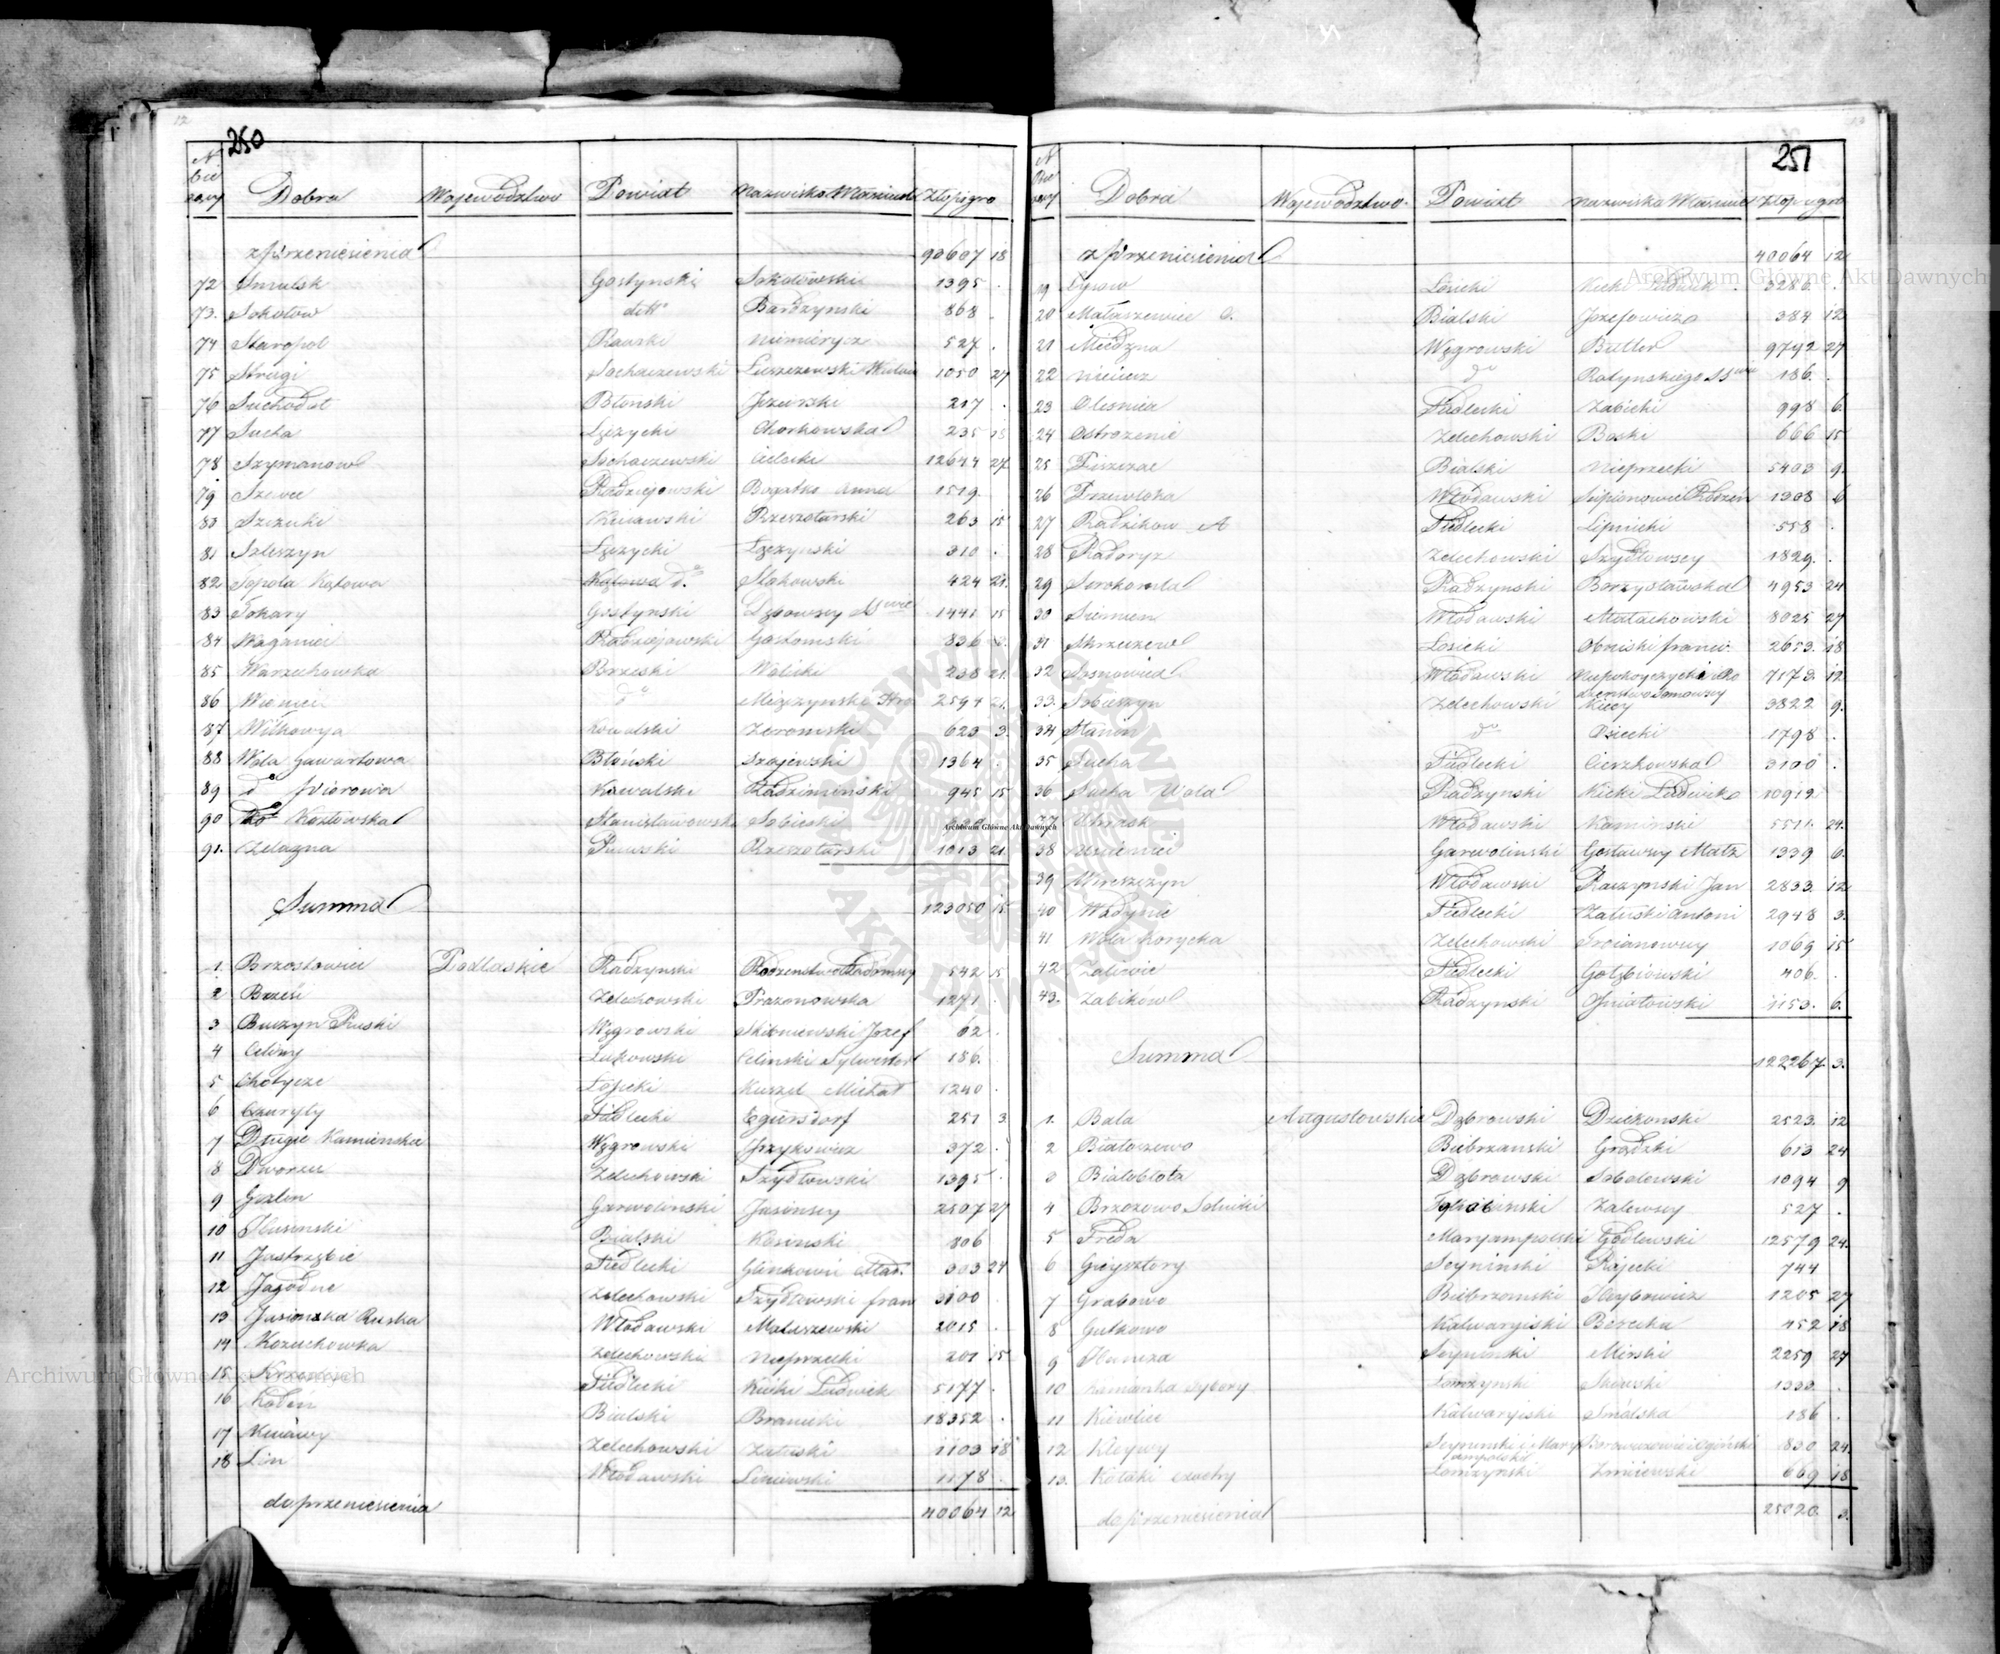 250
N. bie żący Dobra Wojewodztwo Powiat Nazwiska Właścicieli Złop. gro
z przeniesienia 90607 18
72 Smulsk Gostynski Sokołowski 1395 .
73. Sokołow detto Bardzynski 868
74 Staropol Rawski Niemierycz 527 .
75 Strugi Sochaczewski Łuszczewski 1050 27
76 Suchodoł Błonski Jezewski 217 .
77 Sucha Łęczycki Chorkowska 235 15
78 Szymanow Sochaczewski Cielecki 12644 27
79 Szewce Radziejowski Bogatko Anna 1519.
80 Szczuki Rzeszotarski 263 15
81 Szleszyn Łęczycki Łączynski 310 .
82 Topola Kątowa d.o Stokowski 424 21.
83 Tokary Gostynski 1441 15
84 Waganiec Radziejowski Gostomski 836
85 Warzechowka Brzeski Wolicki 238 21.
86 Wieniec do Miączynski Hra. 2594 21.
87 Wilkowya Kowalski Zeromski 623 3.
88 Wola Gawartowa Błoński Szajewski 1364 .
89 do Wiorowa Kowalski Radziminski 945 15
90 do Kozłowska Stanisławowski Sobieski
91. Zelazna Rawski Rzeszotarski 1013 21.
Summa 123050 15
1. Brzostowiec Podlaskie Radzynski 542 15
2 Brzesć Zelechowski Prazonowska 1271 .
3 Buczyn Ruski Węgrowski Skibniewski Jozef 62 .
4 Celiny Łukowski Celinski Sylwester 186.
5 Chotycze Łosicki Kuszel Michał 1240 .
6 Czuryły Siedlecki Egiersdorf 251 3.
7 Długie Kamienskie Węgrowski Grzykowicz 372 .
8 Dworzec Zelechowski Szydłowski 1395 .
9 Gozlin Garwolinski Jasinscy 2507 27
10 Husinski Bialski Kosinski 806
11 Jastrzębie Siedlecki 303 24
12 Jagodne Zelechowski Szydłowski fran 3100
13 Jasionka Ruska Włodawski Matuszewski 2015 .
14 Kozuchowka Zelechowski Nieprzecki 201 15
15 Krzesk Siedlecki Kicki Ludwik 5177 .
16 Koden Bialski Branicki 18352 .
17 Zelechowski Załuski 1103 18
18 Lin Włodawski Liniewski 1178 .
do przeniesienia 40064 12
251
N Bie żący Dobra Wojewodztwo. Powiat Nazwiska Właścicieli Złop. gro
z przeniesienia 40064 12
19 Łysow Łosicki Kicki Ludwik 3286. .
20 Małaszewice D. Bialski Jozefowicz 384 12
21 Miedzna Węgrowski Butler 9792 27
22 do Ratynskiego 186. .
23 Olesnica Siedlecki Zabicki 998 6.
24 Ostrozenie Zelechowski Boski 666 15
25 Piszczac Bialski Nieprzecki 5403 9.
26 Przewłoka Włodawski 1308 6
27 Radzikow A Siedlecki Lipnicki 558
28 Radoryz Zelechowski Szydłowscy 1829. .
29 Serokomla Radzynski Borzysławska 4953 24
30 Siemien Włodawski Małachowski 8025 27
31 Skrzeszew Łosicki 2653. 18
32 Sosnowica Włodawski 7173. 12.
33. Sobieszyn Zelechowski Kiccy 3822 9.
34 Stanin do Osiecki 1798 .
35 Sucha Siedlecki Cieszkowska 3100 .
36 Sucha Wola Radzynski Kicki Ludwik 10919.
37 Uhrusk Włodawski Kaminski 5511. 24.
38 Usieniec Garwolinski 1339 6.
39 Wereszczyn Włodawski Raczynski Jan 2833. 12
40 Wodynie Siedlecki Załuski Antoni 2948 3.
41 Wola Korycka Zelechowski Troianowscy 1069 15
42 Zaliwie Siedlecki Gołębiowski 406. .
43. Zabików Radzynski Gniatowski 1153. 6.
Summa 122267 3.
1. Bala Augustowskie Dąbrowski Dziekonski 2523. 12
2 Białaszewo Biebrzanski Grądzki 613 24
3 Białobłota Dąbrowski Sobolewski 1094 9
4 Brzozowo Solniki Zalewscy 527 .
5 Freda Maryampolski Godlewski 12579 24.
6 Giżysztory Seyninski Rajecki 744
7 Grabowo Biebrzanski 1205 27
8 Gutkowo Kalwaryiski Berecka 452 18
9 Seyninski Mirski 2259 27
10 Łomzynski Skiwski 1333.
11 Kiewlice Kalwaryiski Smolska 186 .
12 Kleywy Seyninski i Maryampolski 830 24.
13. Kołaki Łomzynski Zmijewski 669 18
do przeniesienia 25020. 3.
Archiwum Główne Akt Dawnych
Archiwum Główne Akt Dawnych
Archiwum Główne Akt Dawnych